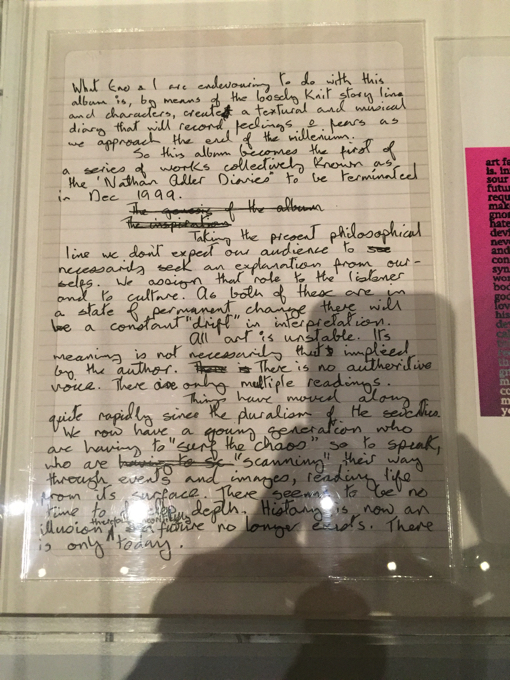 What Eno & I are endeavouring to do with this
album is, by means of the loosely Knit story line
and characters, create a textural and musical
diary that will record feelings & fears as
we approach the end of the millenium.
So this album becomes the first of
a series of works collectively Known as
the "Nathan Adler Diaries" to be terminated
in Dec 1999.
The genesis of the album
The inspiration
Taking the present philosophical
line we don't expect our audience to
necessarily seek an explanation from our-
selfs. We assign that role to the listener
and to culture. As both of these are in
a state of permanent change there will
be a constant "drift" in interpretation.
All art is unstable. Its
meaning is not necessarily that implied
by the author. There is There is no authoritive
voice. There are only multiple readings.
Things have moved along
quite rapidly since the pluralism of the seventies.
We now have a young generation who
are having to "surf the chaos" so to speak,
who are having to "scanning" their way
through events and images, reading life
from its surface. There seems to be no
time to depth. History is now an
illusion therefore future no longer exists. There
is only today.
art fa
is. in
sour
futur
requ
mak
gnom
hate
devi
neve
and
con
syn
wor
bod
goo
lov
his
de